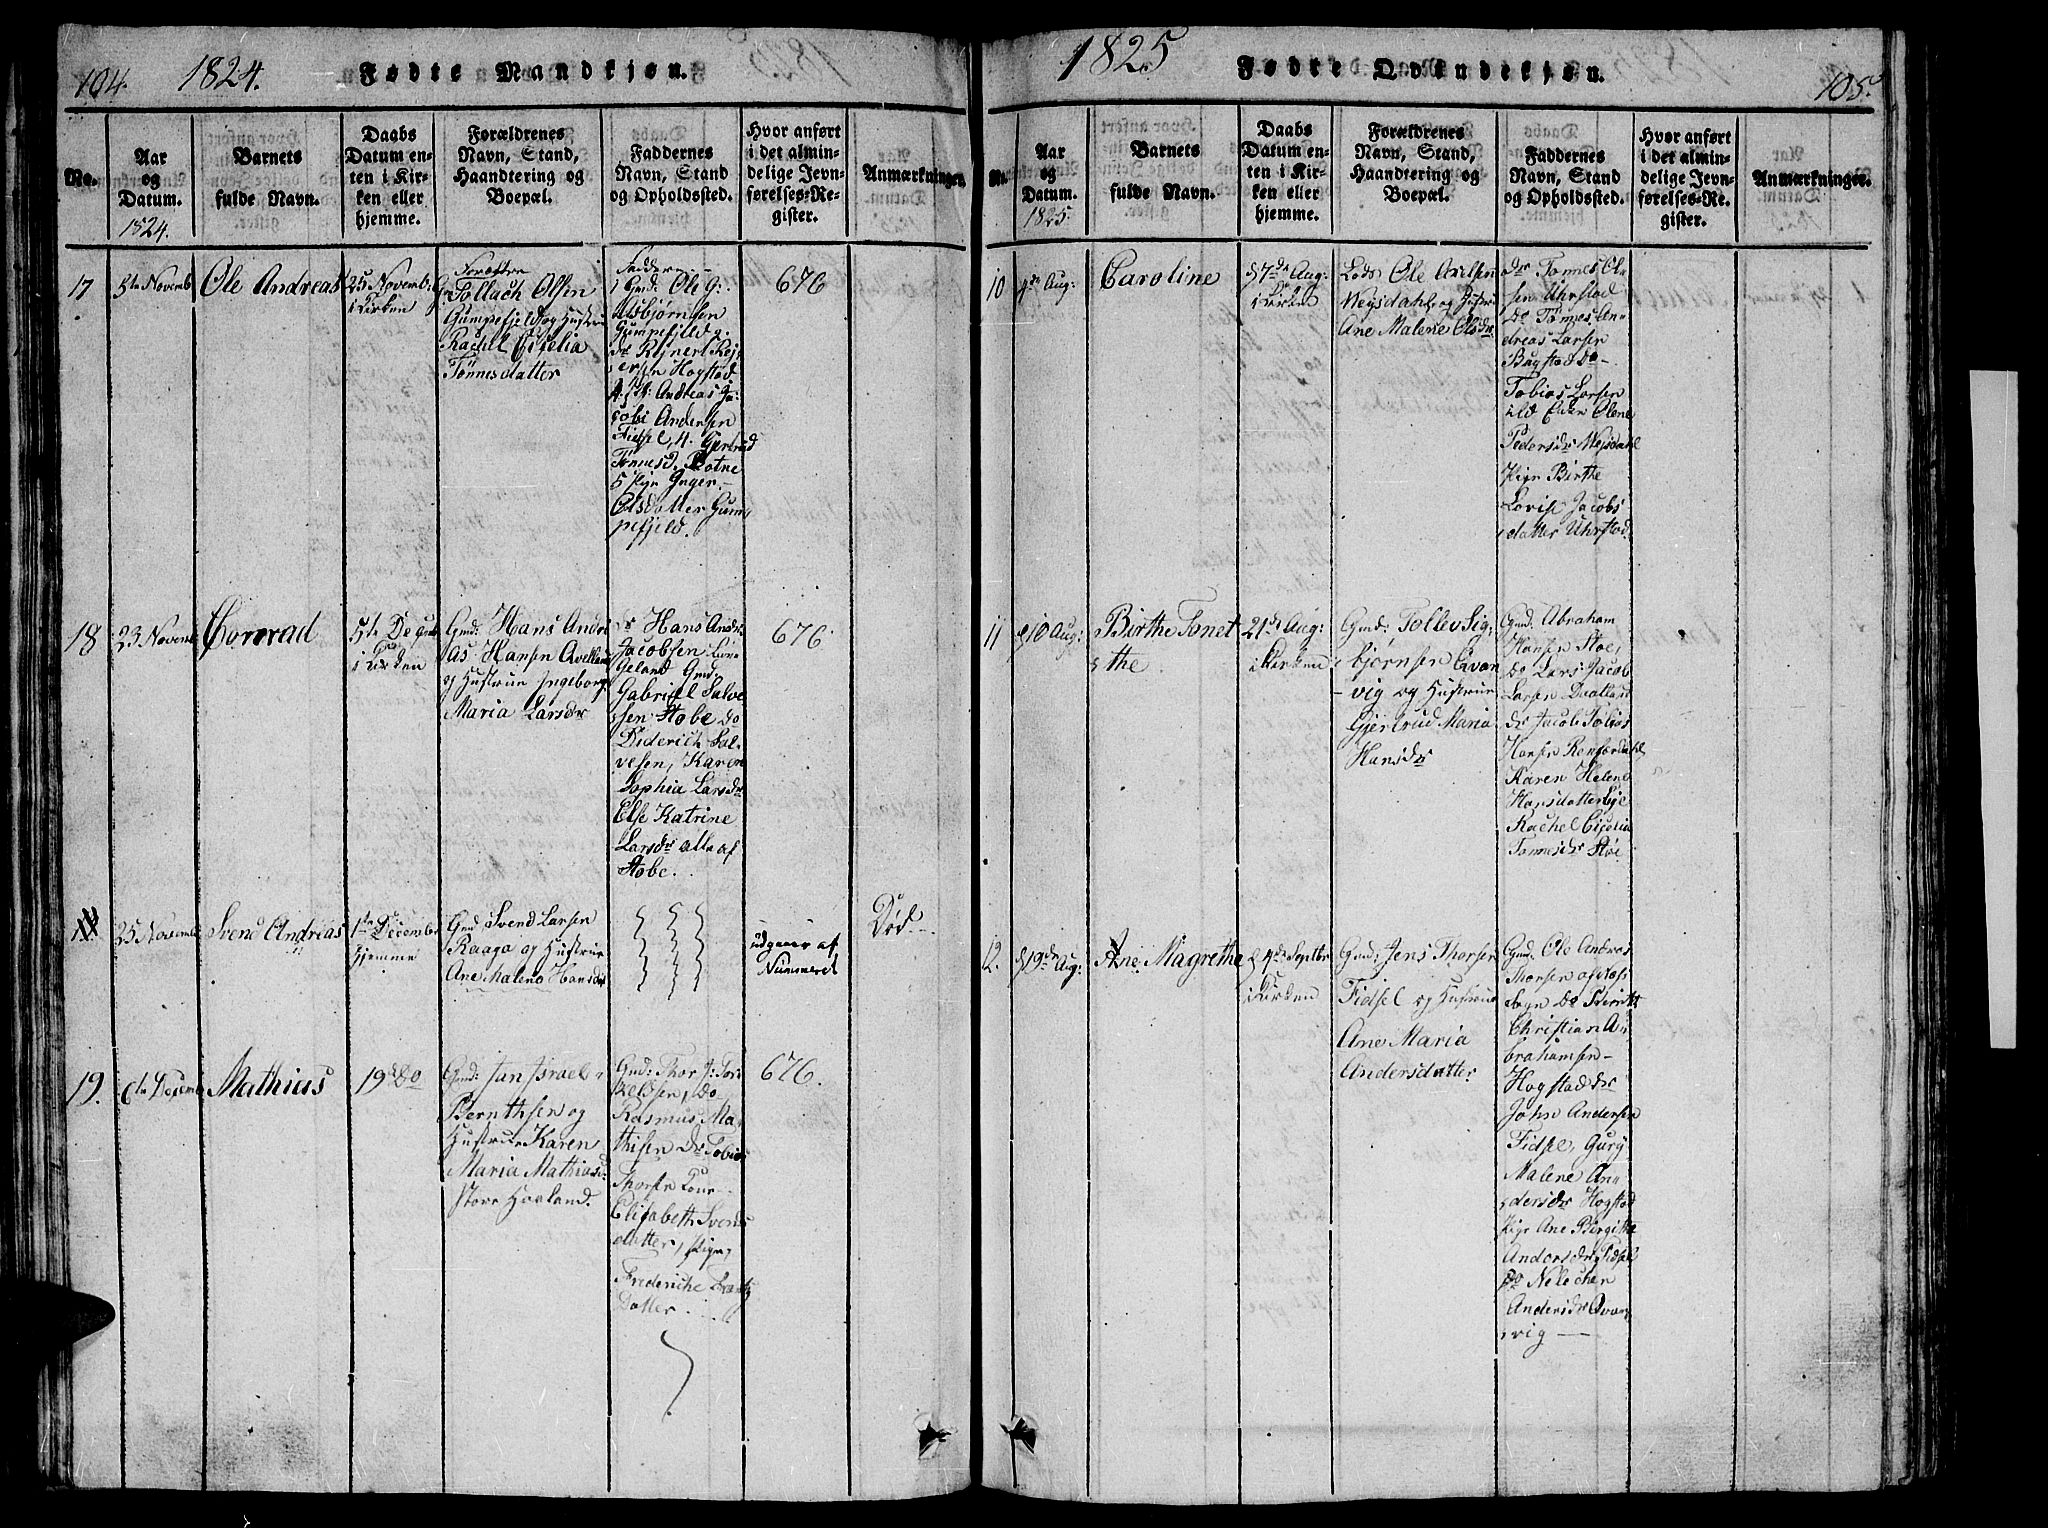 104.
1824.
Fødte Mandkjøn.
No.
Aar
og
Datum.
1824.
Barnets
fulde Navn.
Daabs
Datum en-
ten i Kir-
ken eller
hjemme.
Forældrenes
Navn, Stand,
Haandtering og
Boepæl.
Faddernes
Navn, Stand
og Opholdssted.
Hvor anført
i det almin-
delige Jevn-
førelses-Re-
gister.
Anmærkninger.
17
5te Novemb
Ole Andreas
25 Novemb:
i Kirken
Forældre
Tollach Olsen
Gumpefjeld og Hustru
Rachel Cicelia
Tønnesdatter
Faddere
1 Gmd: Ole G:
Asbjørnsen
Gumpefjeld 2:
do Rejnert Rej
ersen Hogstad
Andreas Ja-
cobi Andersen
Fidsel, 4. Gjertrud
Tønnesd. Rotne
5 Pige Inger
Olsdatter Gum
pefjeld.
676
18
23 Novemb
Conrad
5te Decemb
i Kirken
Gmd: Hans Andre
as Hansen Avelland
og Hustrue Ingeborg
Maria Larsdr
Hans Andr
Jacobsen
Geland Gmd.
Gabriel Salve
sen Stobe do
Diderich Sal-
vesen, Karen
Sophia Larsdr
Else Katrine
Larsdr alle af
Stobe.
676.
25 Novemb
Svend Andreas
1ste December
hjemme
Gmd Svend Larsen
Raaga og Hustrue
Ane Malene Hansdr
udgaaer af
Nummeret
Død
19.
6te Decemb
Mathius
19de Do
Gmd: Jan Israel
Berntsen og
Hustrue Karen
Maria Mathiasd
Store Haaland.
Gmd: Thor J: Tor
kelsen, Do
Rasmus Ma-
thisen Dr Tobias
Thorsen
Elisabeth Svends
datter, Pige,
Frederiche
Datter.
676.
1825
Fødte Qvindekjøn.
105.
No.
Aar
og
Datum.
1825.
Barnets
fulde Navn.
Daabs
Datum en-
ten i Kir-
ken eller
hjemme.
Forældrenes
Navn, Stand,
Haandtering og
Boepæl.
Faddernes
Navn, Stand
og Opholdssted.
Hvor anført
i det almin-
delige Jevn-
førelses-Re-
gister.
Anmærkninger.
10
4de Aug:
Caroline
d 7de Aug:
i Kirken
Lods Ole Axelsen
Weysdahl og Hustru
Ane Malene Olsdr
dr Tønnes Ol-
sen Uhrstad
Do Tønnes An-
dreas Larsen
Bugstad do
Tobias Larsen
Olene
Pedersdr Weysdahl
Pige Birthe
Lovise Jacobs
datter Uhrstad.
11
d 10 Aug:
Birthe Tonet
the.
21de Aug:
i Kirken
Gmd: Tollev Sig
bjørnsen Qvan
vig og Hustrue
Gjertrud Maria
Hansdr
Gmd: Abraham
Hansen Stoe,
do Lars Jacob
Larsen Dualland
dr Jacob Tobias
Hansen
Karen Helene
Hansdatter Eje
Rachel Cicelia
Tønnesdr Støe
12.
d 19de Aug:
Ane Magrethe
d 4de Septbr
i Kirken
Gmd: Jens Thorsen
Fidsel og Hustrue
Ane Maria
Andersdatter
Gmd: Ole Andreas
Thorsen
Do Berntt
Christian A-
brahamsen
Hogstad dr
John Andersen
Fidsel, Gury
Malene An-
dersdr Hogstad
Pige Ane Bergithe
Andersdr Fidsel
Do Nelechen
Andersdr Qvan
vig